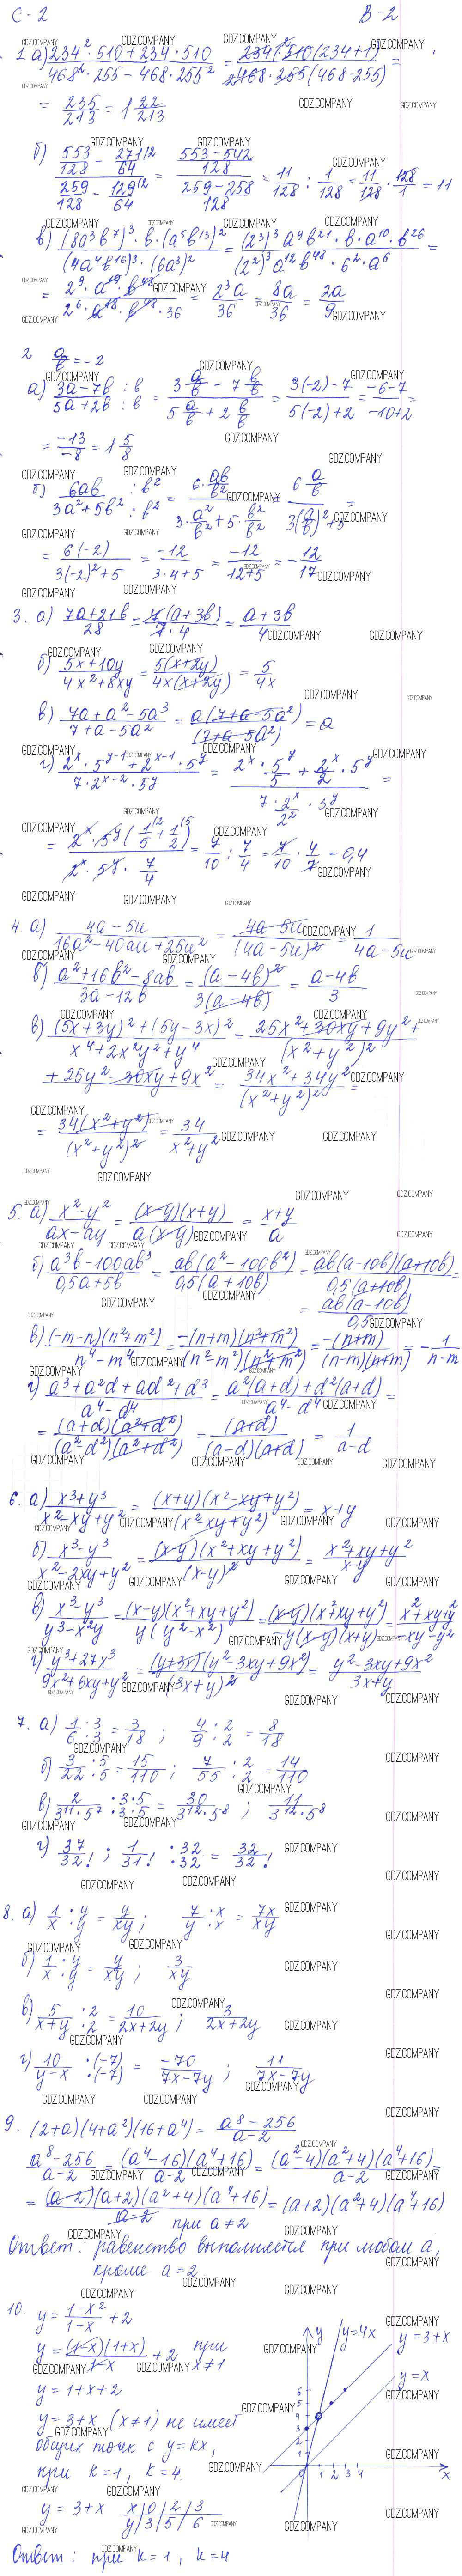 С-2 В-2
1. а) (234²·510+234·510)/(468²·255−468·255²) = (234·510(234+1))/(468·255(468−255)) =
= 235/213 = 1 22/213
б) (553/128 − 271/64)/(259/128 − 129/64) = ((553−542)/128)/((259−258)/128) = 11/128 : 1/128 = 11/128 · 128/1 = 11
в) ((8a³b⁷)³·b·(a⁵b¹³)²)/((4a⁴b¹⁶)³·(6a³)²) = ((2³)³a⁹b²¹·b·a¹⁰·b²⁶)/((2²)³a¹²b⁴⁸·6²·a⁶) =
= (2⁹·a¹⁹·b⁴⁸)/(2⁶·a¹⁸·b⁴⁸·36) = 2³a/36 = 8a/36 = 2a/9
2 a/b = −2
а) (3a−7b)/(5a+2b) :b :b = (3 a/b − 7 b/b)/(5 a/b + 2 b/b) = (3(−2)−7)/(5(−2)+2) = (−6−7)/(−10+2) =
= −13/−8 = 1 5/8
б) 6ab/(3a²+5b²) :b² :b² = (6·ab/b²)/(3·a²/b²+5·b²/b²) = (6 a/b)/(3(a/b)²+5) =
= 6(−2)/(3(−2)²+5) = −12/(3·4+5) = −12/(12+5) = −12/17
3. а) (7a+21b)/28 = 7(a+3b)/(7·4) = (a+3b)/4
б) (5x+10y)/(4x²+8xy) = 5(x+2y)/(4x(x+2y)) = 5/4x
в) (7a+a²−5a³)/(7+a−5a²) = a(7+a−5a²)/(7+a−5a²) = a
г) (2ˣ·5ʸ⁻¹+2ˣ⁻¹·5ʸ)/(7·2ˣ⁻²·5ʸ) = (2ˣ·5ʸ/5 + 2ˣ/2·5ʸ)/(7·2ˣ/2²·5ʸ) =
= (2ˣ·5ʸ(1/5+1/2))/(2ˣ·5ʸ·7/4) = 7/10 : 7/4 = 7/10 · 4/7 = 0,4
4 а) (4a−5u)/(16a²−40au+25u²) = (4a−5u)/(4a−5u)² = 1/(4a−5u)
б) (a²+16b²−8ab)/(3a−12b) = (a−4b)²/(3(a−4b)) = (a−4b)/3
в) ((5x+3y)²+(5y−3x)²)/(x⁴+2x²y²+y⁴) = (25x²+30xy+9y²+)/(x²+y²)²
(+25y²−30xy+9x²) = (34x²+34y²)/(x²+y²)² =
= 34(x²+y²)/(x²+y²)² = 34/(x²+y²)
5. а) (x²−y²)/(ax−ay) = (x−y)(x+y)/(a(x−y)) = (x+y)/a
б) (a³b−100ab³)/(0,5a+5b) = ab(a²−100b²)/(0,5(a+10b)) = ab(a−10b)(a+10b)/(0,5(a+10b)) =
= ab(a−10b)/0,5
в) (−m−n)(n²+m²)/(n⁴−m⁴) = −(n+m)(n²+m²)/((n²−m²)(n²+m²)) = −(n+m)/((n−m)(n+m)) = −1/(n−m)
г) (a³+a²d+ad²+d³)/(a⁴−d⁴) = (a²(a+d)+d²(a+d))/(a⁴−d⁴) =
= (a+d)(a²+d²)/((a²−d²)(a²+d²)) = (a+d)/((a−d)(a+d)) = 1/(a−d)
6. а) (x³+y³)/(x²−xy+y²) = (x+y)(x²−xy+y²)/(x²−xy+y²) = x+y
б) (x³−y³)/(x²−2xy+y²) = (x−y)(x²+xy+y²)/(x−y)² = (x²+xy+y²)/(x−y)
в) (x³−y³)/(y³−x²y) = (x−y)(x²+xy+y²)/(y(y²−x²)) = (x−y)(x²+xy+y²)/(−y(x−y)(x+y)) = (x²+xy+y²)/(−xy−y²)
г) (y³+27x³)/(9x²+6xy+y²) = (y+3x)(y²−3xy+9x²)/(3x+y)² = (y²−3xy+9x²)/(3x+y)
7. а) 1/6 ·3 ·3 = 3/18 ; 4/9 ·2 ·2 = 8/18
б) 3/22 ·5 ·5 = 15/110 ; 7/55 ·2 ·2 = 14/110
в) 2/(3¹¹·5⁷) ·3·5 ·3·5 = 30/(3¹²·5⁸) ; 11/(3¹²·5⁸)
г) 37/32! ; 1/31! ·32 ·32 = 32/32!
8. а) 1/x ·y ·y = y/xy ; 7/y ·x ·x = 7x/xy
б) 1/x ·y ·y = y/xy ; 3/xy
в) 5/(x+y) ·2 ·2 = 10/(2x+2y) ; 3/(2x+2y)
г) 10/(y−x) ·(−7) ·(−7) = −70/(7x−7y) ; 11/(7x−7y)
9. (2+a)(4+a²)(16+a⁴) = (a⁸−256)/(a−2)
(a⁸−256)/(a−2) = (a⁴−16)(a⁴+16)/(a−2) = (a²−4)(a²+4)(a⁴+16)/(a−2) =
= (a−2)(a+2)(a²+4)(a⁴+16)/(a−2) = (a+2)(a²+4)(a⁴+16)
при a≠2
Ответ: равенство выполняется при любом a,
кроме a=2
10. y = (1−x²)/(1−x) + 2
y = (1−x)(1+x)/(1−x) + 2 при x≠1
y = 1+x+2
y = 3+x (x≠1) не имеет
общих точек с y=kx,
при k=1, k=4.
y = 3+x x|0|2|3
y|3|5|6
y y=4x y=3+x
y=x
6
5
4
3
2
1
0 1 2 3 4 x
Ответ: при k=1, k=4
GDZ.COMPANY